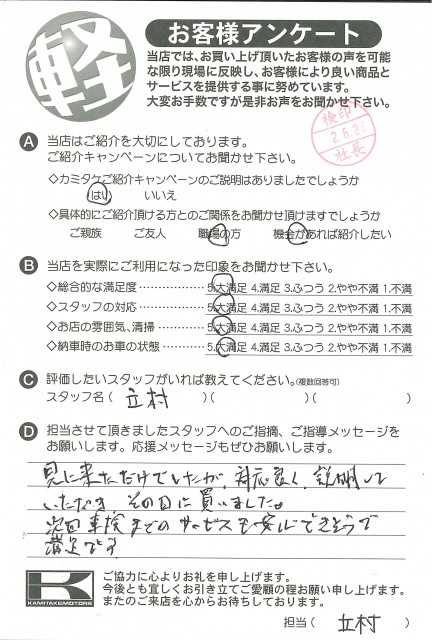 軽
お客様アンケート
当店では、お買い上げ頂いたお客様の声を可能
な限り現場に反映し、お客様により良い商品と
サービスを提供する事に努めています。
大変お手数ですが是非お声をお聞かせ下さい。
検印
2.6.25
社長
A 当店はご紹介を大切にしております。
ご紹介キャンペーンについてお聞かせ下さい。
◇カミタケご紹介キャンペーンのご説明はありましたでしょうか
はい いいえ
◇具体的にご紹介頂ける方とのご関係をお聞かせ頂けますでしょうか
ご親族 ご友人 職場の方 機会があれば紹介したい
B 当店を実際にご利用になった印象をお聞かせ下さい。
◇総合的な満足度 ………… 5.大満足 4.満足 3.ふつう 2.やや不満 1.不満
◇スタッフの対応 ………… 5.大満足 4.満足 3.ふつう 2.やや不満 1.不満
◇お店の雰囲気、清掃 ……… 5.大満足 4.満足 3.ふつう 2.やや不満 1.不満
◇納車時のお車の状態 ……… 5.大満足 4.満足 3.ふつう 2.やや不満 1.不満
C 評価したいスタッフがいれば教えてください。(複数回答可)
スタッフ名 ( 立村 )( )( )
D 担当させて頂きましたスタッフへのご指摘、ご指導メッセージを
お願いします。応援メッセージもぜひお願いします。
見に来ただけでしたが、対応良く、説明して
いただき その日に買いました。
次回車検までのサービスも安心できそうで
満足です
K
KAMITAKEMOTORS
ご協力に心よりお礼を申し上げます。
今後とも宜しくお引き立てご愛顧の程お願い申し上げます。
またのご来店を心からお待ちしております。
担当 ( 立村 )